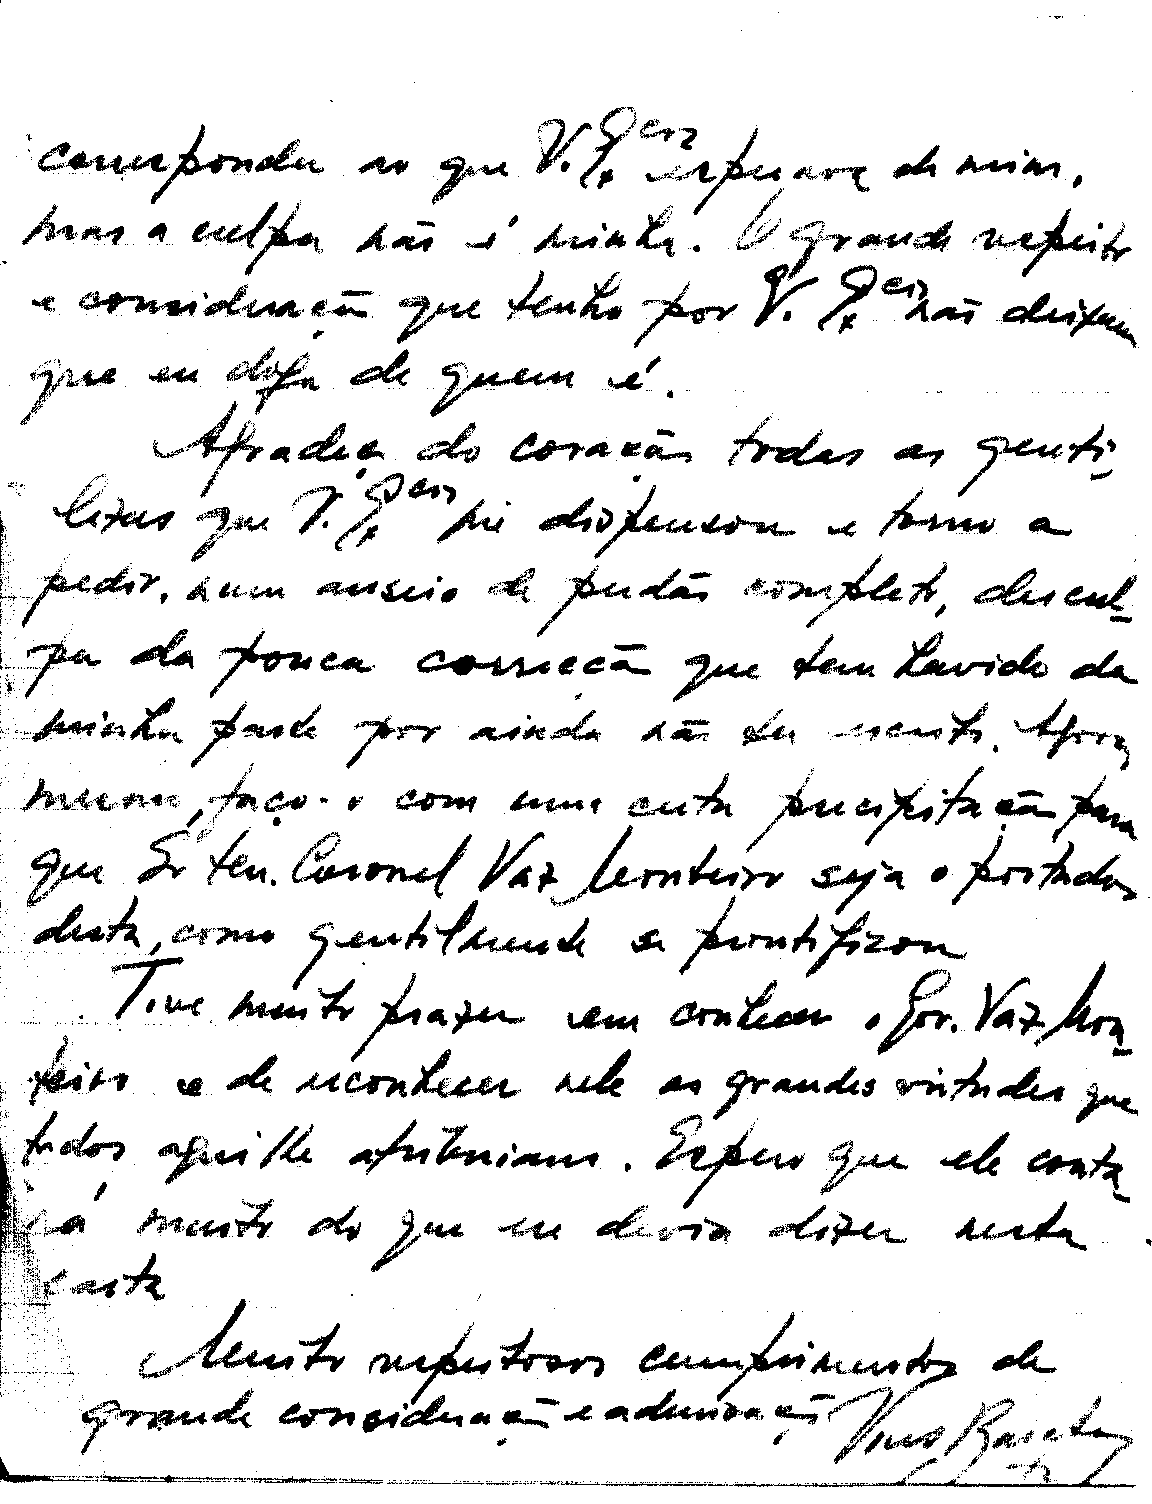 corresponder ao que V. Ex.cia esperava de mim,
mas a culpa não é minha. O grande respeito
e consideração que tenho por V. Ex.cia não deixam
que eu diga de quem é.
Agradeço do coração todas as genti-
lezas que V. Ex.cia me dispensou e torno a
pedir, num anseio de perdão completo, descul-
pa da pouca correcção que tem havido da
minha parte por ainda não ter escrito. Agora
mesmo, faço-o com uma certa precipitação para
que Sr Ten. Coronel Vaz Monteiro seja o portador
desta, como gentilmente se prontificou
Tive muito prazer em conhecer o Gov. Vaz Mon-
teiro e de reconhecer nele as grandes virtudes que
todos aqui lhe atribuiam. Espero que ele conta-
rá muito do que eu devia dizer nesta
carta
Muito respeitosos cumprimentos de
grande consideração e admiração